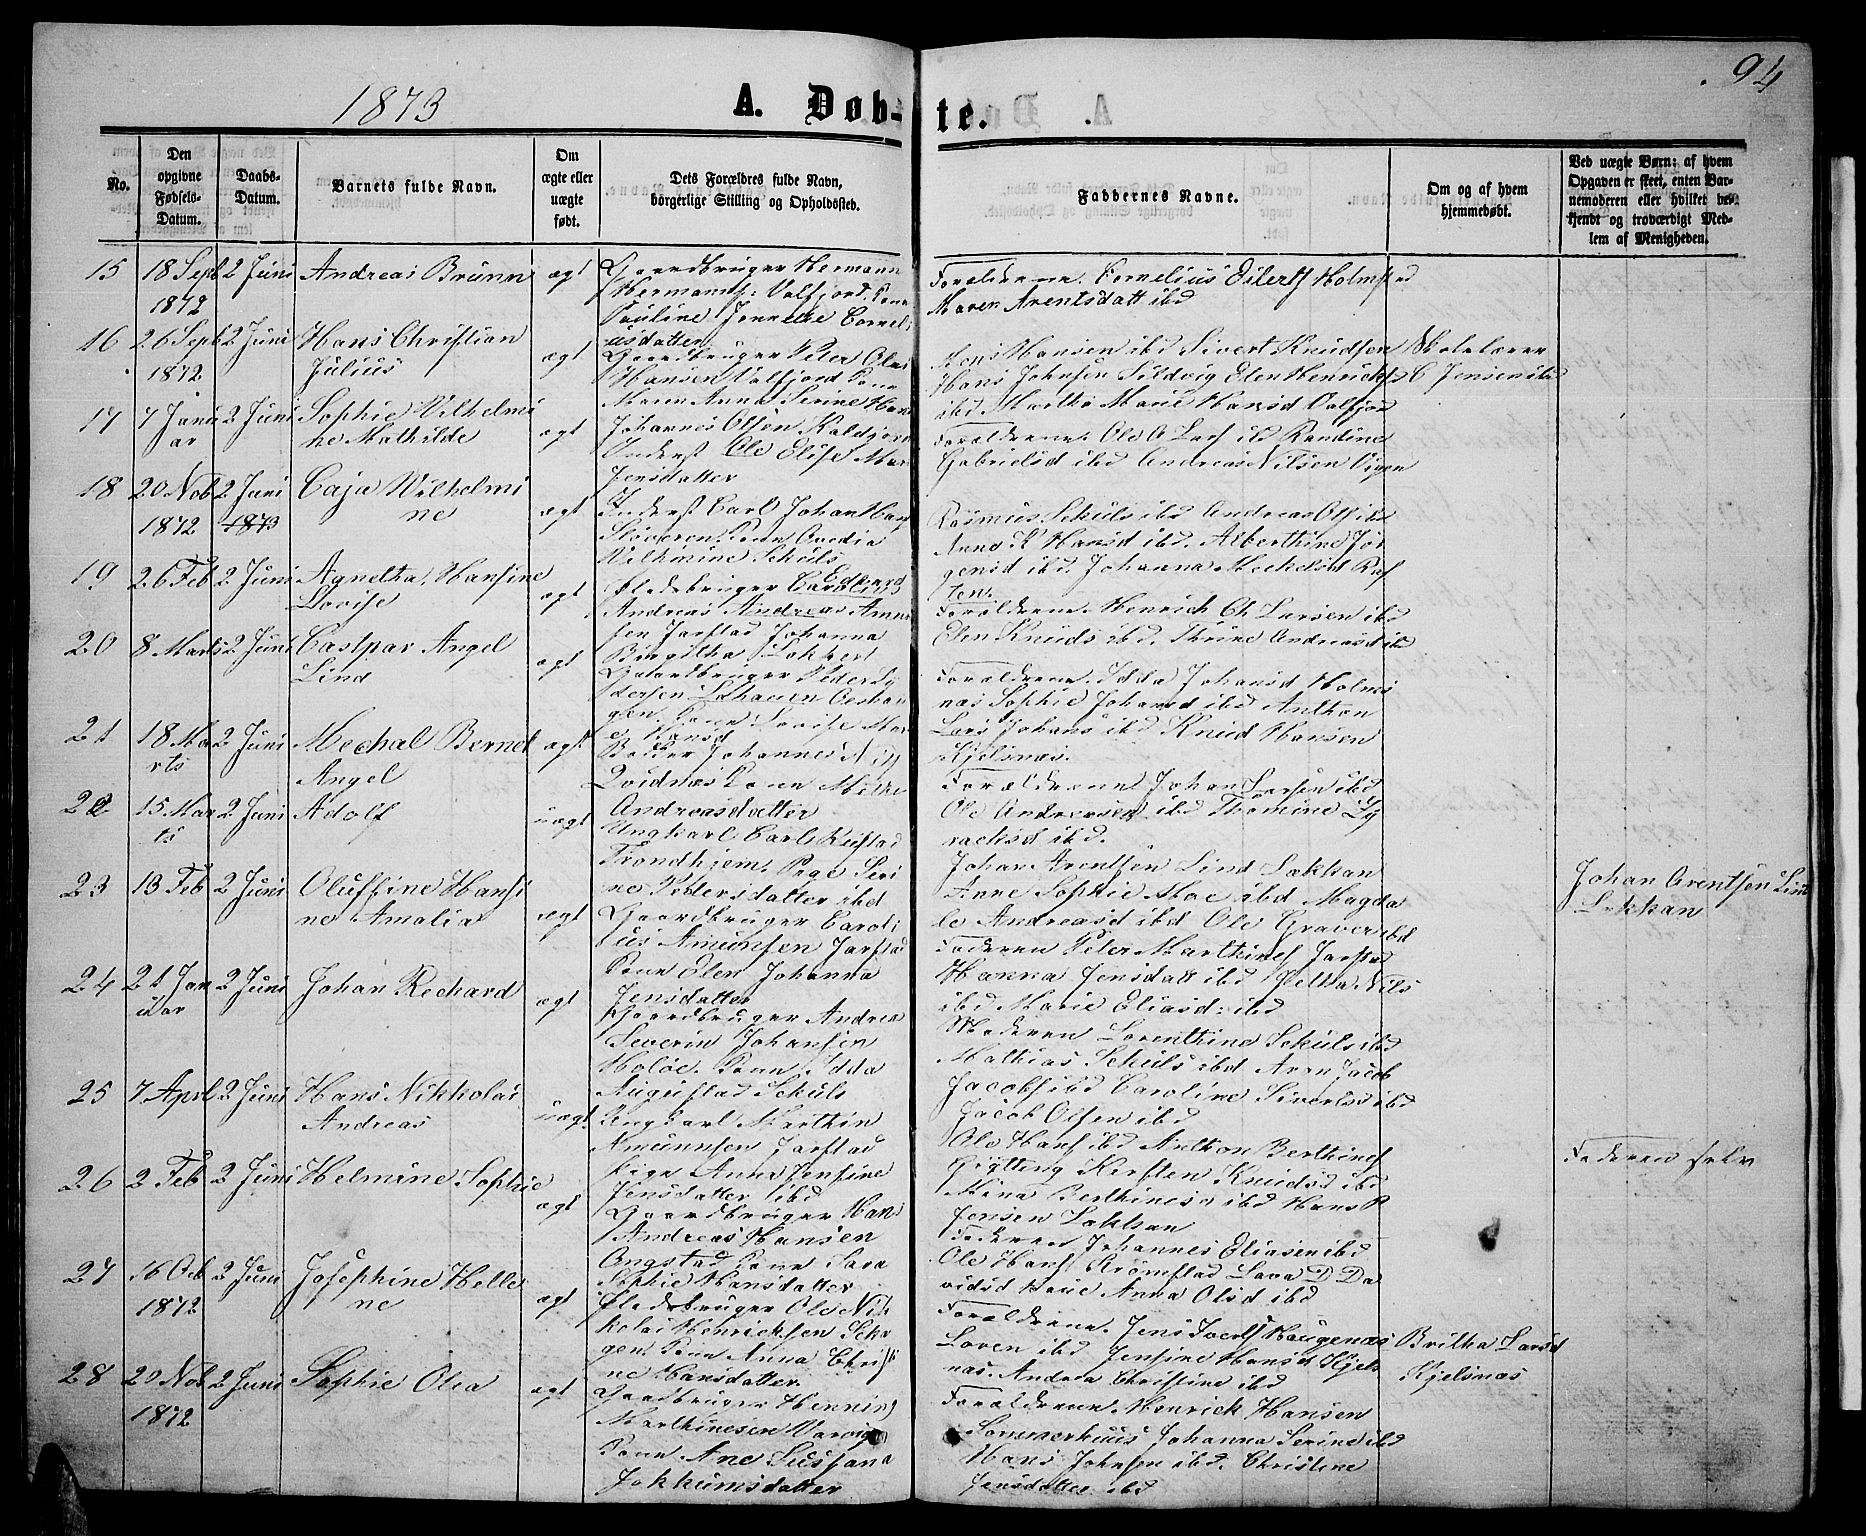 1873
A. Døb-
te.
94
No.
Den opgivne Fødsels-Datum.
Daabs-Datum.
Barnets fulde Navn.
Om ægte eller uægte født.
Dets Forældres fulde Navn, borgerlige Stilling og Opholdssted.
Faddernes Navne.
Om og af hvem hjemmedøbt.
Ved uægte Børn: af hvem Opgaven er skeet, enten Barnemoderen eller hvilket bekjendt og troværdigt Medlem af Menigheden.
15 18 Sept 1872 2 Juni Andreas Brunn ægt
Gaardbruger Hermann
Hermansf: Valfjord, Kone
Pauline Cornel
usdatter
Forældrene. Cornelius Eilertf Holmstad
Maren Arentsdatt ibd
16 26 Sept 1872 2 Juni Hans Christian
Julius ægt
Gaardbruger Peter Olai
Hansen Valfjord Kone
Maren Anna Serine Hans
Hansen ibd Sivert Knudsen
Hans Johnsen Sildvig Elen Henriksd
ibd Martha Marie Hansd Valfjor
Skolelærer
C Jensen ibd
17 7 Janu
ar 2 Juni Sophie Vilhelmi
ne Mathilde ægt
Johannes Olsen Kaldjord
Inderst Ole Elise Mar
Jensdatter
Forældrene. Ole A Larf ibd Randine
Gabrielsd ibd Andreas Nilsen Vigen
18 20 Nob 1872 2 Juni 1873 Caja Wilhelmi
ne ægt
Inderst Carl Johan Hans
Sløveren Kone Ovedia
Wilhmine Sckuls
Rasmus Sckuls ibd Andreas Olf ibd
Anna K Hansd ibd. Alberthine Jør
gensd ibd. Johanna Mechelsd Raf
ten.
19 26 Feb 2 Juni Agnetha Hansine
Lovise ægt
Pladsbruger Carolius Edevard
Andreas Andreas Amun
sen Jarstad Johanna
Birgitha Lokkert
Forældrene. Henrich Ch Larsen ibd
Elen Knuds ibd. Thrine Andreasd ibd
20 8 Marts 2 Juni Castpar Angel
Lind ægt
Gaardbruger Peder Sy
dersen
gen. Kone Lovise Mar
Hansd
Forældrene. Idda Johansd Holmes
nas Sophie Johansd ibd Anthon
Lars Johans ibd Knud Hansen
Kjelsnæs.
21 18 Ma
rts 2 Juni Mechal Bernt
Angel ægt
Johannes Nilf
Qvidnæs Kone
Andreasdatter
Forældrene Johan Larsen ibd
Ole Andersen ibd Thomine Zy
rachsd ibd.
22 15 Mar
ts 2 Juni Adolf uægt
Ungkarl Carl Rustad
Trondhjem, Pige Seri
ne Pedersdatter ibd
Johan Arentsen Lind Lakkan
Anne Sophie Moe ibd Magda
le Andreasd ibd Ole Graver ibd
Johan Arentsen Lind
Lakkan
23 13 Feb 2 Juni Oluffine Hansi
ne Amalia ægt
Gaardbruger Caroli
us Amunsen Jarstad
Kone Elen Johanna
Jensdatter
Faderen Peter Marthinsf Jarstad
Hanna Jensdatt ibd Petha Nils
ibd Marie Eliasd: ibd
24 21 Jan
uar 2 Juni Johan Rechard ægt
Gaardbruger Andrea
Severin Johansen
Holøe. Kone Idda
Augustad Sckuls
Moderen Lorenthine Sckuls ibd
Mathias Sckuls ibd Aron Jacob
Jacobs ibd Caroline Sivertsd ibd
Jacob Olsen ibd
25 7 Aprl 2 Juni Hans Nikkolai
Andreas uægt
Ungkarl Marthin
Amunnsen Jarstad
Pige Anna Jensine
Jensdatter ibd
Ole Hansf ibd Anthon Berthinsf
Gytting Kirsten Knudsd ibd
Mina Berthinesd ibd Hans P
Jensen Lakkan
Faderen selv
26 2 Feb 2 Juni Helmine Sophie ægt
Gaardbruger Hans
Andreas Hansen
Ongstad Kone Sara
Sophie Hansdatter
Faderen Johannes Eliasen ibd
Ole Hansf Kromstad Lava D Da
vidsd Anna Olsd ibd
27 16 Ocb 1872 2 Juni Josephine Helle
ne ægt
Pladsbruger Ole Nik
kolai Henricksen
gen. Kone Anna Christi
ne Hansdatter
Forældrene. Jens Ivertf Haugenæs
Loven ibd Jensine Hansd Kjels
nas. Andrea Christine ibd
Britha Larsd
Kjelsnæs
28 20 Nob 1872 2 Juni Sophie Olea ægt
Gaardbruger Henning
Marthinesen
Kone Ane Susana
Jokkumsdatter
Forældrene. Henrick Hansen
Sommerhuus Johanna Serine ibd
Hans Johnsen ibd. Christine
Jensdatter ibd